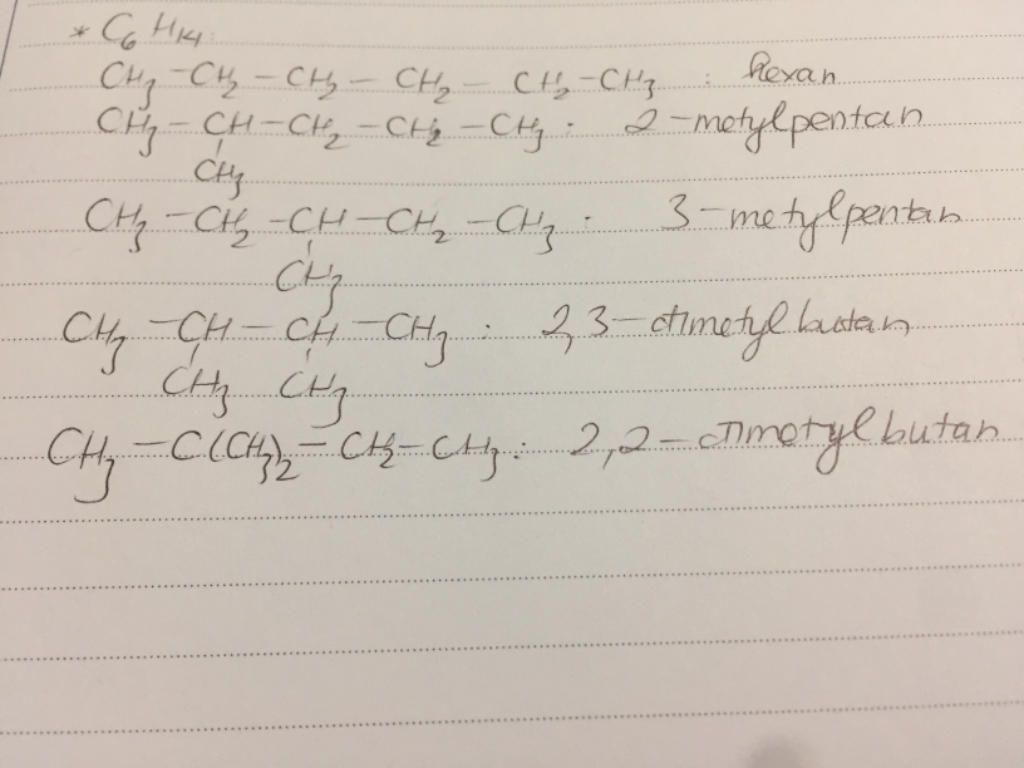 * C₆H₁₄:
CH₃ - CH₂ - CH₂ - CH₂ - CH₂ - CH₃ : hexan
CH₃ - CH - CH₂ - CH₂ - CH₃ : 2-metylpentan
CH₃
CH₃ - CH₂ - CH - CH₂ - CH₃ : 3-metylpentan
CH₃
CH₃ - CH - CH - CH₃ : 2,3-đimetylbutan
CH₃ CH₃
CH₃ - C(CH₃)₂ - CH₂ - CH₃ : 2,2-đimetylbutan